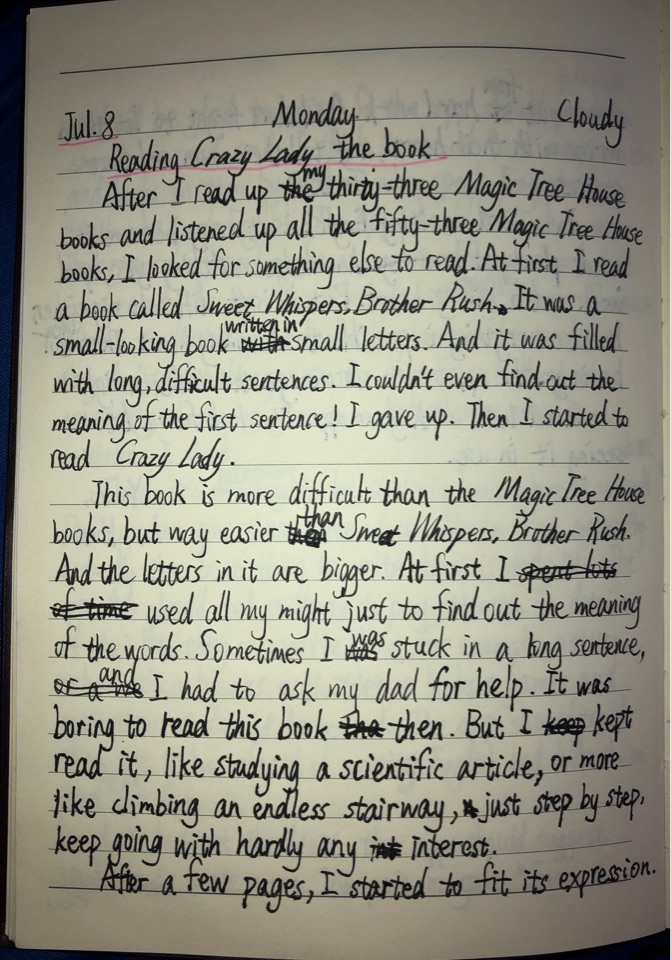 Jul. 8 Monday Cloudy
Reading Crazy Lady the book
After I read up my thirty-three Magic Tree House
books and listened up all the fifty-three Magic Tree House
books, I looked for something else to read. At first I read
a book called Sweet Whispers, Brother Rush. It was a
small-looking book written in small letters. And it was filled
with long, difficult sentences. I couldn't even find out the
meaning of the first sentence! I gave up. Then I started to
read Crazy Lady.
This book is more difficult than the Magic Tree House
books, but way easier than Sweet Whispers, Brother Rush.
And the letters in it are bigger. At first I spent lots
of time used all my might just to find out the meaning
of the words. Sometimes I was stuck in a long sentence,
and I had to ask my dad for help. It was
boring to read this book then. But I keep kept
read it, like studying a scientific article, or more
like climbing an endless stairway, just step by step,
keep going with hardly any interest.
After a few pages, I started to fit its expression.